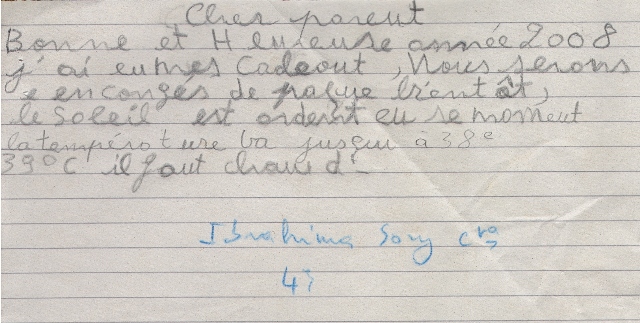 Cher parent
Bonne et Heureuse année 2008
j'ai eu mes Cadeout, Nous serons
en congés de paque bientôt,
le soleil est ardent eu se moment
la température va jusqu'à 38°
39°C il faut chaud!
Ibrahima Sory